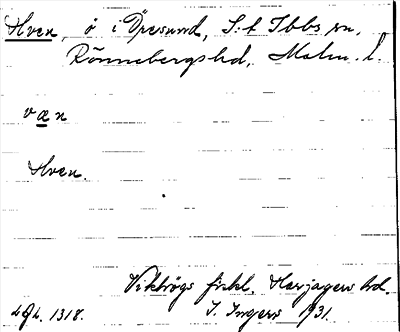 Hven, ö i Öresund, S:t Ibbs sn,
Rönnebergs hd, Malm. l.
væn
Hven.
Vikhögs fiskl. Harjagers hd.
I. Ingers 1931.